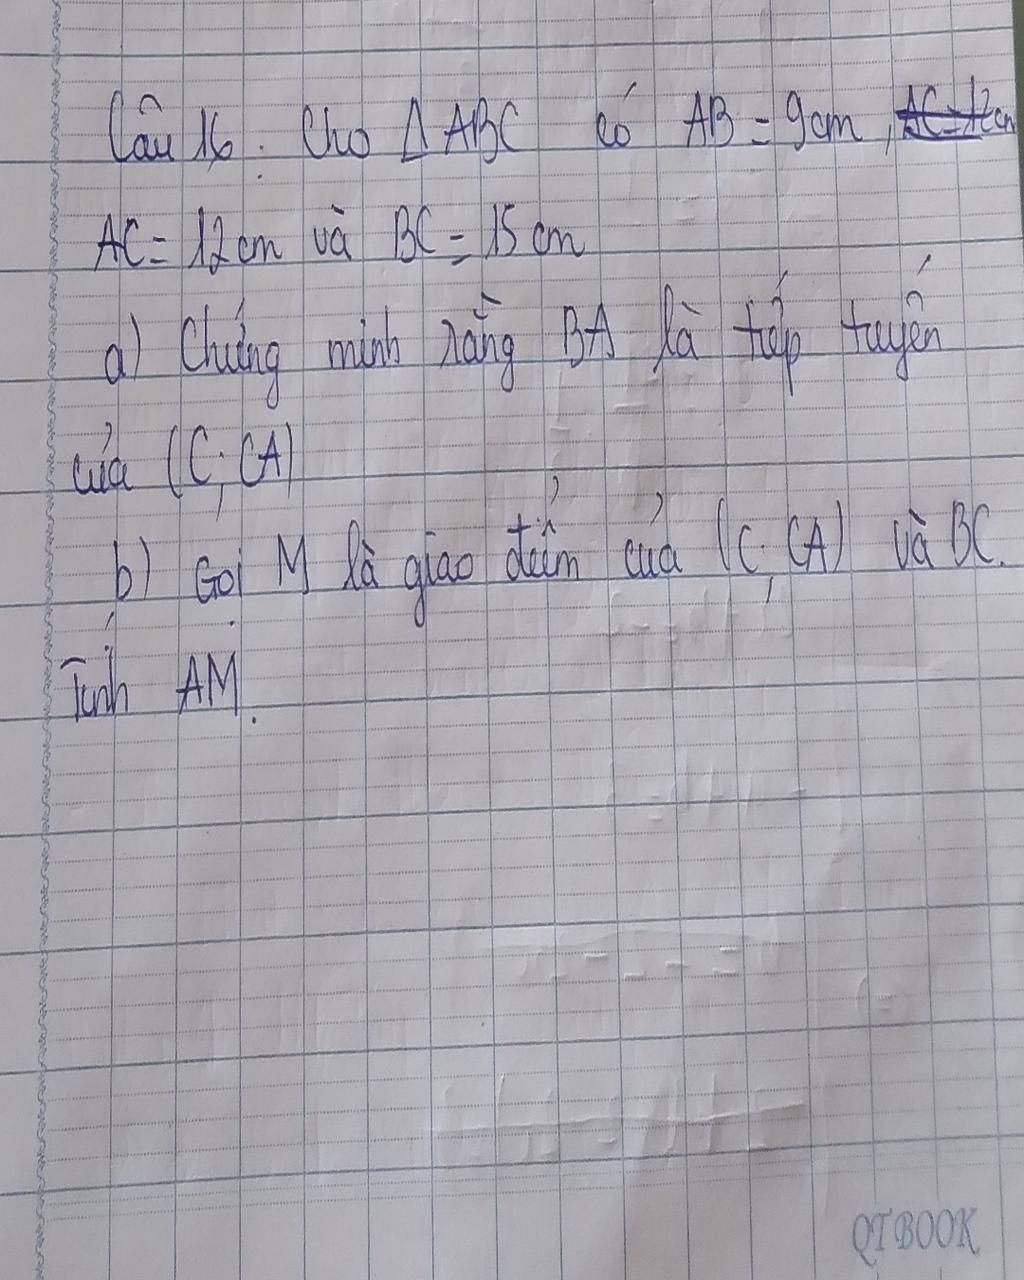 Câu 16. Cho Δ ABC có AB = 9cm, AC = 12cm
AC = 12cm và BC = 15cm
a) Chứng minh rằng BA là tiếp tuyến
của (C; CA)
b) Gọi M là giao điểm của (C; CA) và BC.
Tính AM.
QTBOOK